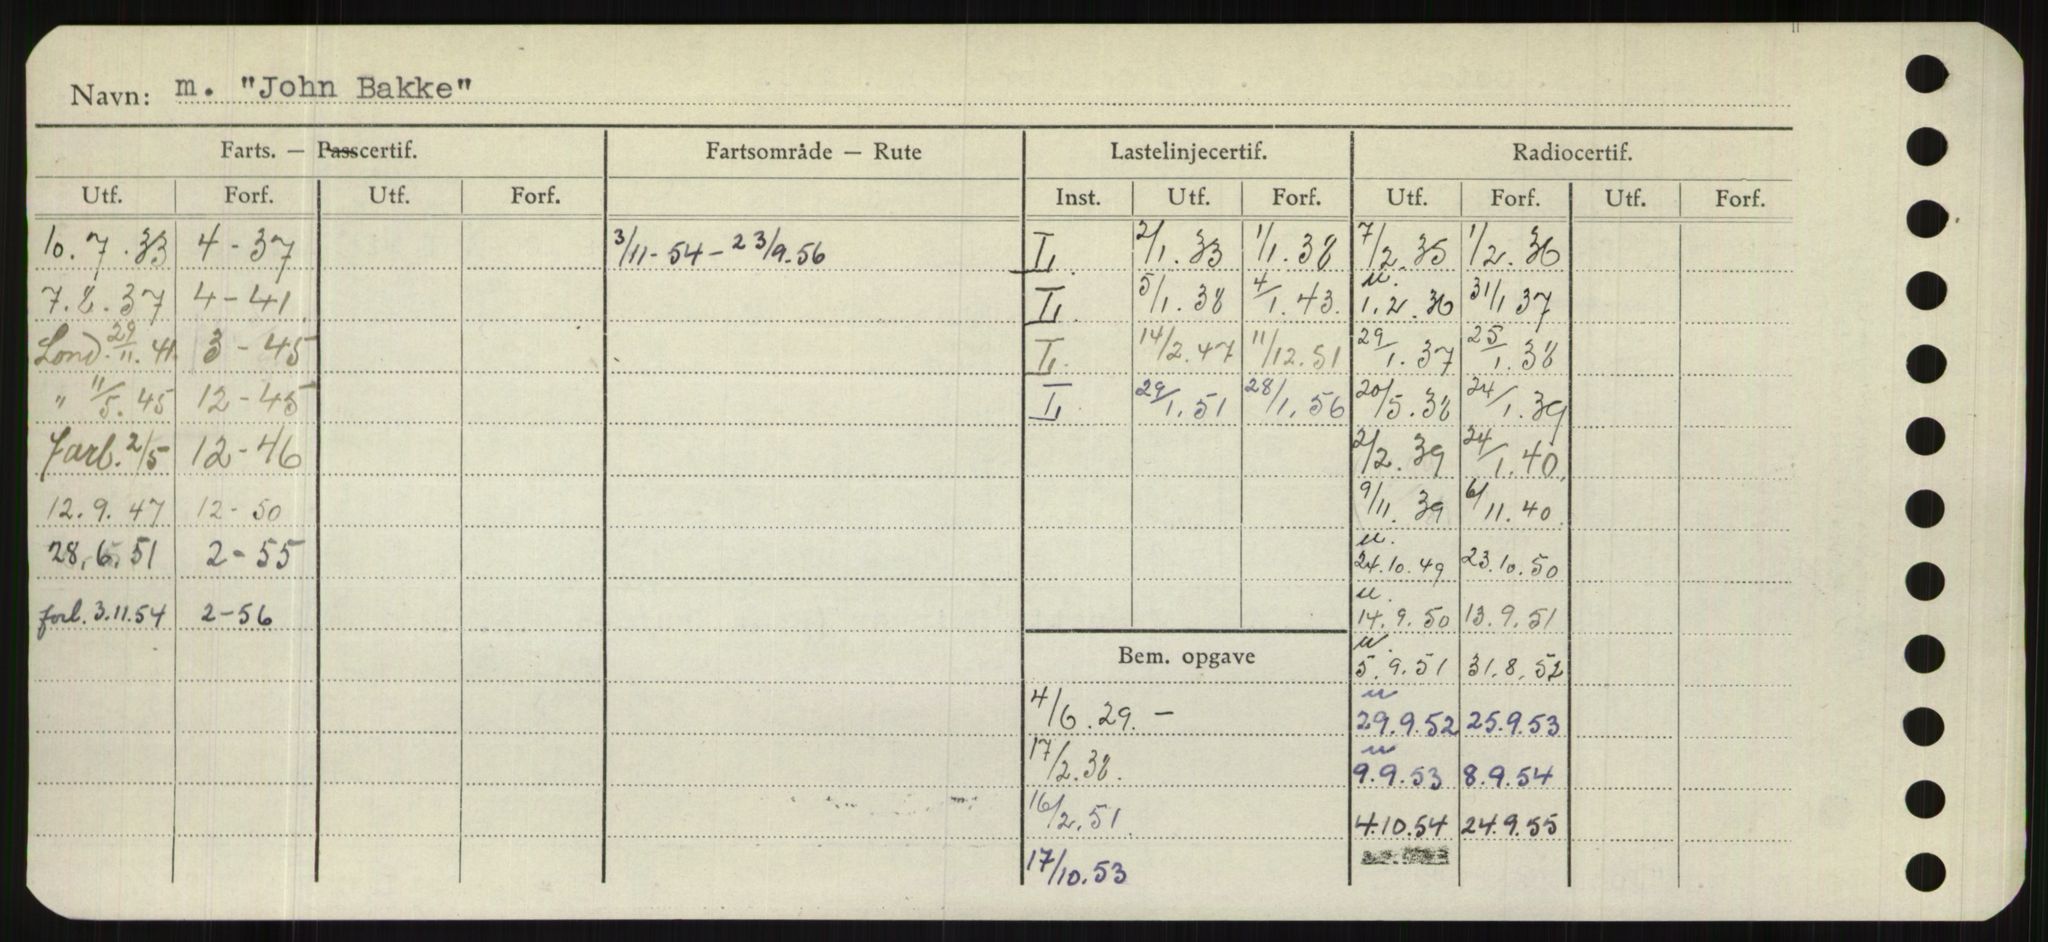 Navn: m. "John Bakke"
Farts. — Passcertif. Fartsområde — Rute Lastelinjecertif. Radiocertif.
Utf. Forf. Utf. Forf. Inst. Utf. Forf. Utf. Forf. Utf. Forf.
10.7.33 4-37 3/11-54-23/9.56 2/1.33 1/1.38 7/2.35 1/2.36
7.8.37 4-41 5/1.38 4/1.43. u. 1.2.36 31/1 37
Lond. 29/11.41 3-45 14/2.47 11/12.51 29/1.37 25/1.38
" 11/5.45 12-45 29/1.51 28/1.56 20/5.38 24/1.39
forl. 2/5 12-46 2/2.39 24/1.40
12.9.47 12-50 9/11.39 6/11.40
28.6.51 2-55 u. 24.10.49 23.10.50
forl. 3.11.54 2-56 u. 14.9.50 13.9.51
Bem. opgave u. 5.9.51 31.8.52
4/6.29.- u 29.9.52 25.9.53
17/2.38. u 9.9.53 8.9.54
16/2.51 4.10.54 24.9.55
17/10.53